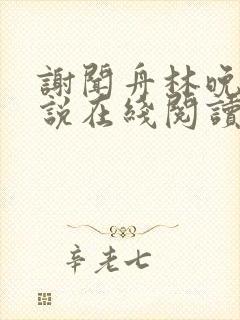 謝聞舟林晚
說在綫閱讀
辛老七